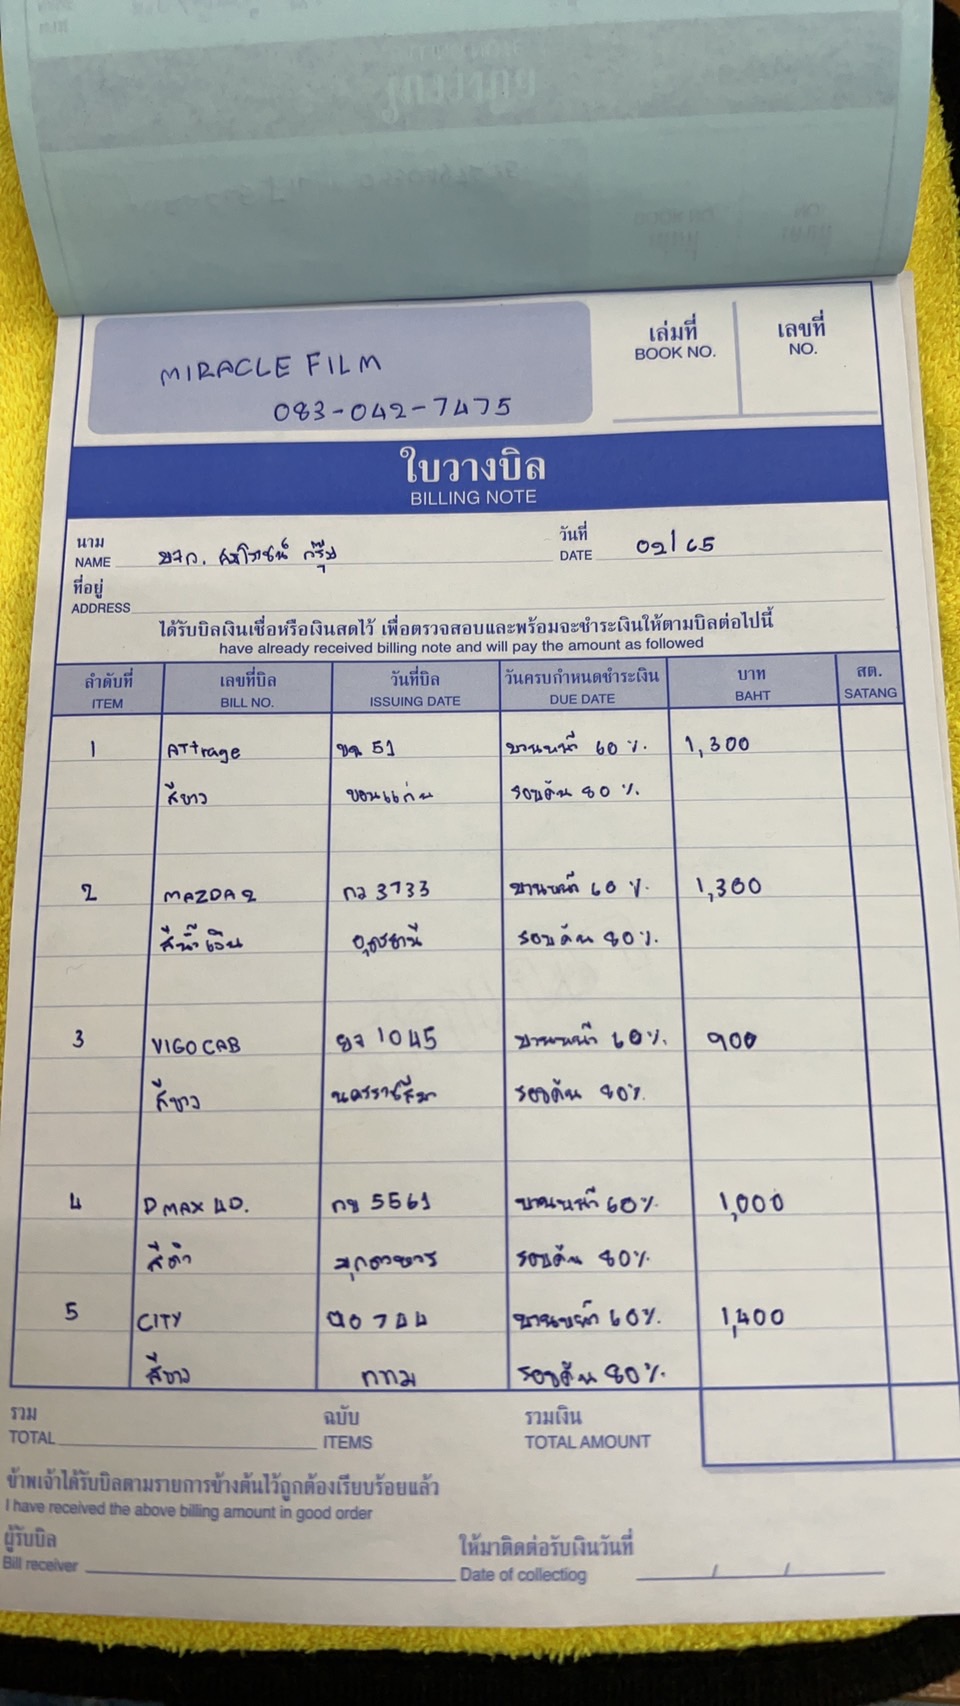 MIRACLE FILM
083-042-7475
เล่มที่
BOOK NO.
เลขที่
NO.
ใบวางบิล
BILLING NOTE
นาม
NAME
วันที่
DATE 02/65
ที่อยู่
ADDRESS
ได้รับบิลเงินเชื่อหรือเงินสดไว้ เพื่อตรวจสอบและพร้อมจะชำระเงินให้ตามบิลต่อไปนี้
have already received billing note and will pay the amount as followed
ลำดับที่ เลขที่บิล วันที่บิล วันครบกำหนดชำระเงิน บาท สต.
ITEM BILL NO. ISSUING DATE DUE DATE BAHT SATANG
1 ATtrage 51 บานหน้า 60 % 1,300
สีขาว ขอนแก่น รอบคัน 80 %
2 MAZDA 2 กว 3733 บานหน้า 60 % 1,300
สีน้ำเงิน อุดรธานี รอบคัน 80%
3 VIGO CAB 1045 บานหน้า 60% 900
สีขาว นครราชสีมา รอบคัน 80%
4 DMAX 4D. กข 5561 บานหน้า 60% 1,000
สีดำ มุกดาหาร รอบคัน 80%
5 CITY 744 บานหน้า 60% 1,400
สีขาว กทม รอบคัน 80%
รวม ฉบับ รวมเงิน
TOTAL ITEMS TOTAL AMOUNT
ข้าพเจ้าได้รับบิลตามรายการข้างต้นไว้ถูกต้องเรียบร้อยแล้ว
I have received the above billing amount in good order
ผู้รับบิล
Bill receiver
ให้มาติดต่อรับเงินวันที่
Date of collecting / /